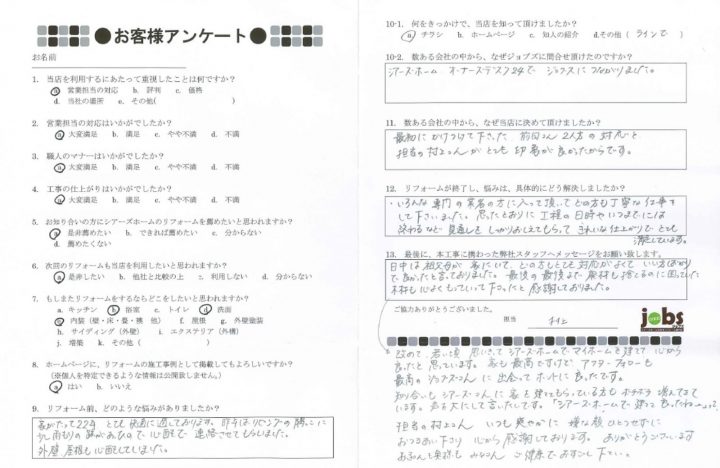 お客様アンケート
お名前
1. 当店を利用するにあたって重視したことは何ですか？
a 営業担当の対応 b. 評判 c. 価格
d. 当社の場所 e. その他( )
2. 営業担当の対応はいかがでしたか？
a 大変満足 b. 満足 c. やや不満 d. 不満
3. 職人のマナーはいかがでしたか？
a 大変満足 b. 満足 c. やや不満 d. 不満
4. 工事の仕上がりはいかがでしたか？
a 大変満足 b. 満足 c. やや不満 d. 不満
5. お知り合いの方にシアーズホームのリフォームを薦めたいと思われますか？
a 是非薦めたい b. できれば薦めたい c. 分からない
d. 薦めたくない
6. 次回のリフォームも当店を利用したいと思われますか？
a 是非したい b. 他社と比較の上 c. 利用しない d. 分からない
7. もしまたリフォームをするならどこをしたいと思われますか？
a. キッチン b 浴室 c. トイレ d 洗面
e 内装（壁・床・畳・襖 他） f. 屋根 g. 外壁塗装
h. サイディング（外壁） i. エクステリア（外構）
j. 増築 k. その他( )
8. ホームページに、リフォームの施工事例として掲載してもよろしいですか？
（※個人を特定できるような情報は公開致しません。）
a はい b. いいえ
9. リフォーム前、どのような悩みがありましたか？
家がたって22年 とても快適に過しております。昨年はリビングの
雨もりの あったので 心配で 連絡させてもらいました。
外壁 屋根も 心配していました。
10-1. 何をきっかけで、当店を知って頂けましたか？
a チラシ b. ホームページ c. 知人の紹介 d.その他（ ラインで ）
10-2. 数ある会社の中から、なぜジョブズに問合せ頂けたのですか？
シアーズホーム オーナーズデスク24で ジョブスにつながりました。
11. 数ある会社の中から、なぜ当店に決めて頂けましたか？
最初にかけつけて下さった 前田さん 2人方の対応と
担当の村上さんがとても 印象が良かったからです。
12. リフォームが終了し、悩みは、具体的にどう解決しましたか？
・いろんな専門の業者の方に入って頂いて どの方も丁寧な仕事を
して下さいました。思ったとおりに 工程の日時や いつまでには
終わるなど 見通しを しっかりおしえてもらって きれいな仕上がりで とても
満足しています。
13. 最後に、本工事に携わった弊社スタッフへメッセージをお願い致します。
日中は祖父母が 家にいて、どの方もとても 対応がよくて いい
で良かったと言っておりました。最後の最後まで 廃材も捨てるのに困っていた
木材も 心よく もっていって下さったと 感謝しておりました。
ご協力ありがとうございました。
担当 村上
jobs
改めて、若い頃 シアーズホームで マイホームを建てて 心から
良かったと思っています。家も最高ですけど アフターフォローも
最高の ジョブスさんに出会って ホントに良かったです。
知り合いも シアーズさんに 家を建ててもらっている方も ボチボチ 増えてきて
います。声を大にして言いたいです。「シアーズホームで建てて良かった
担当の村上さん いつも爽やかに 嫌な顔ひとつせずに
おつきあい下さり 心から感謝しております。ありがとうございます
みなさん ご健康で おすごし 下さい。